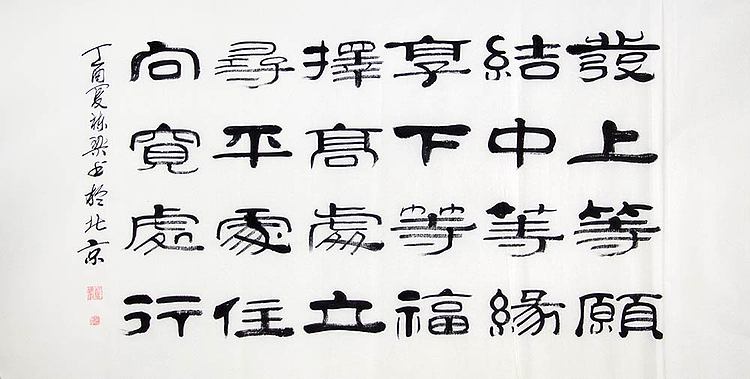 發上等願
結中等緣
享下等福
擇高處立
尋平處住
向寬處行
丁酉夏棟梁书於北京